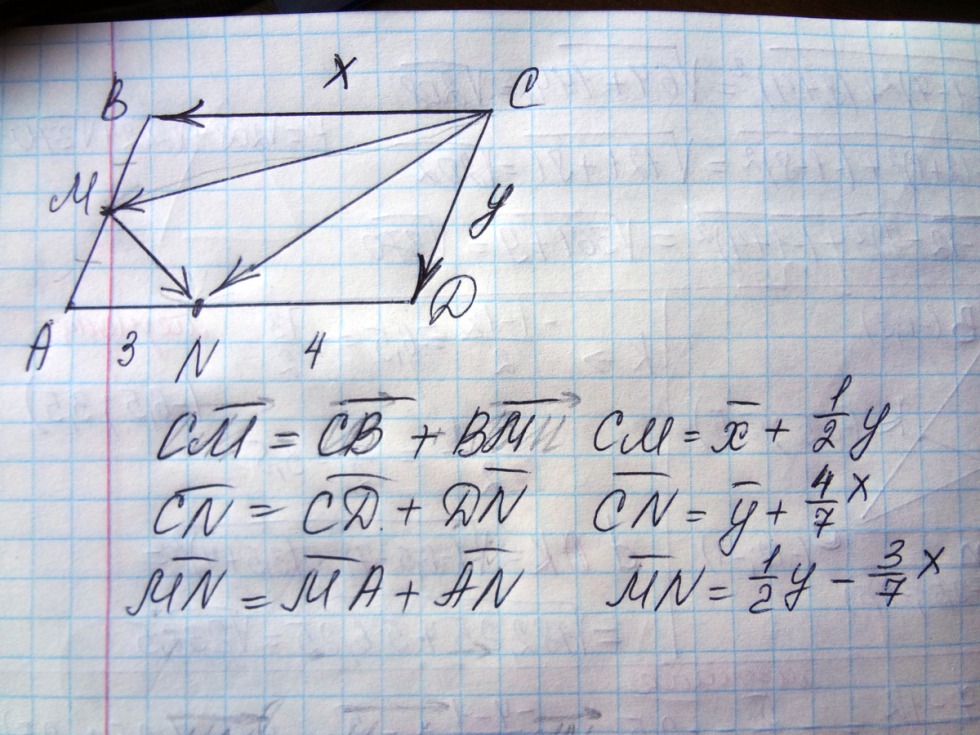 x
B C
M y
A 3 N 4 D
CM = CB + BM CM = x + 1/2 y
CN = CD + DN CN = y + 4/7 x
MN = MA + AN MN = 1/2 y - 3/7 x